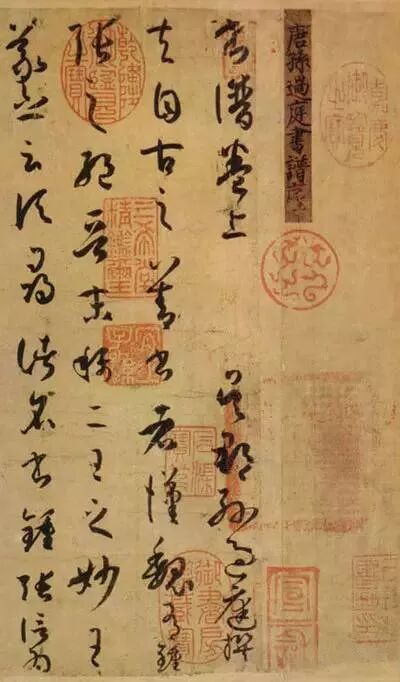 唐孫過庭書譜序
書譜卷上 吳郡孫過庭撰
夫自古之善書者漢魏有鍾
張之絕晉末稱二王之妙王
羲之云頃尋諸名書鍾張信為
三希堂精鑑璽
宜子孫